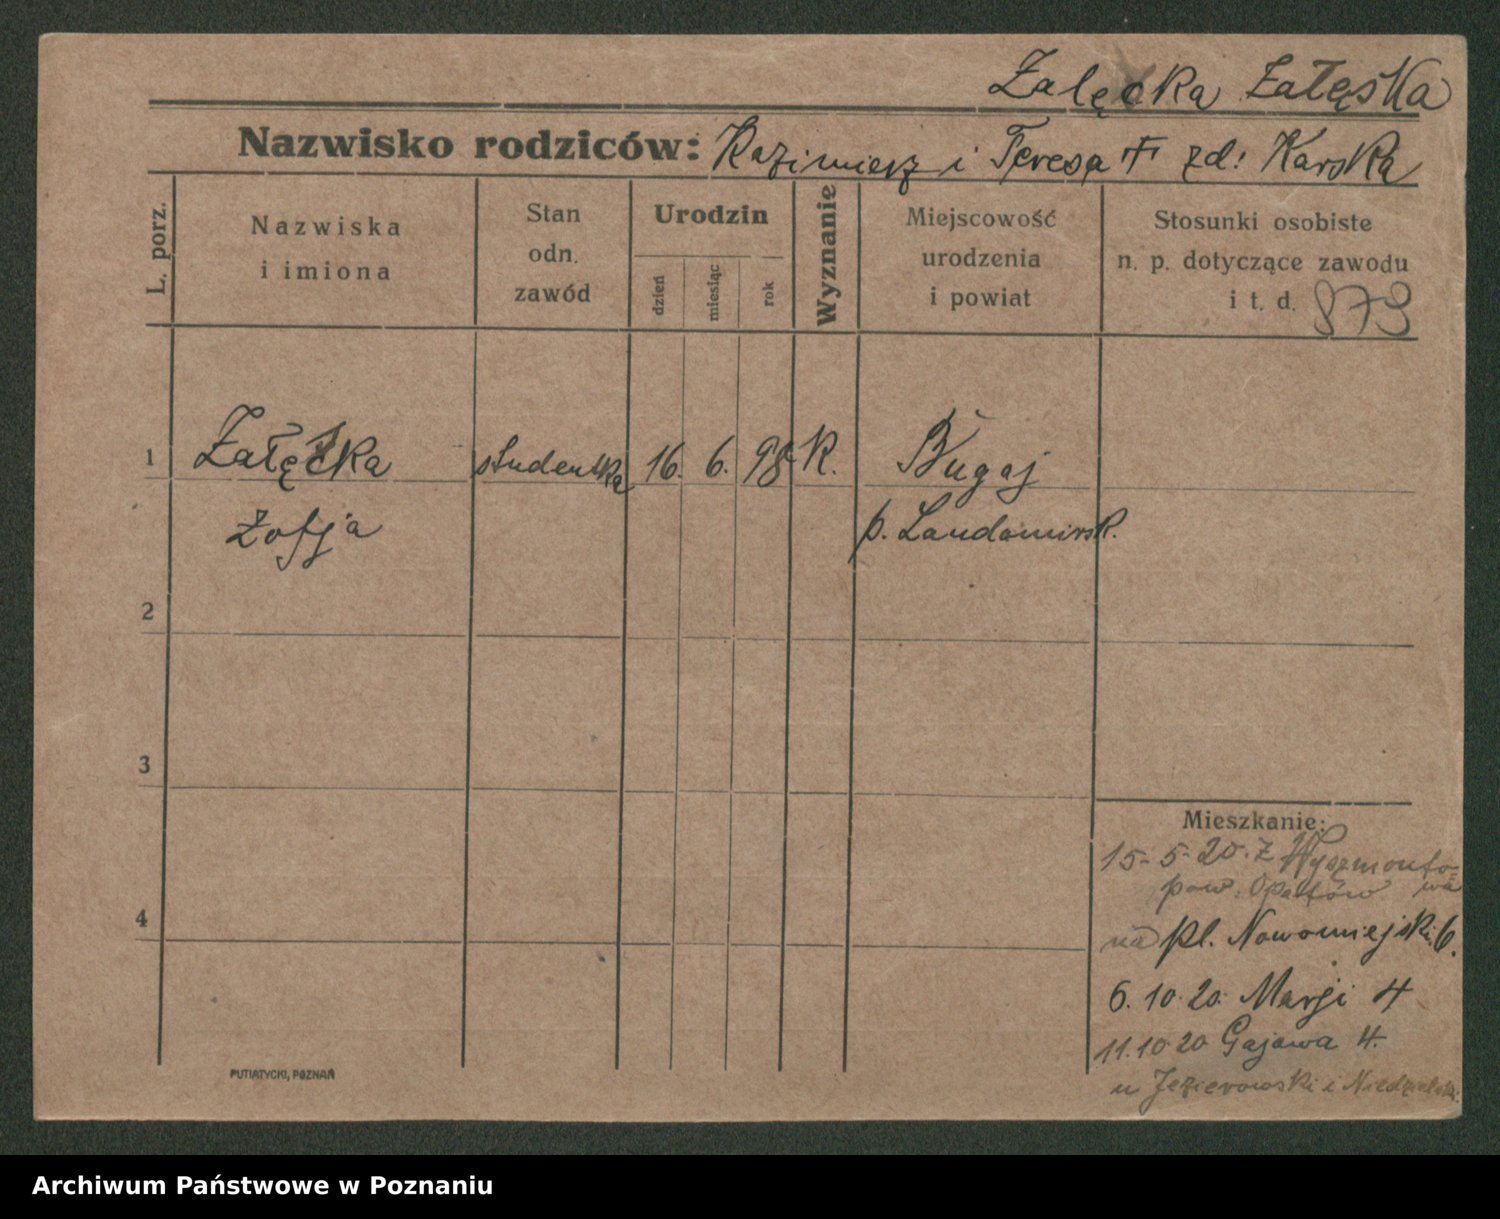 Załęcka Załęska
Nazwisko rodziców: Kazimierz i Teresa zd: Karska
L. porz.
Nazwiska
i imiona
Stan
odn.
zawód
Urodzin
dzień
miesiąc
rok
Wyznanie
Miejscowość
urodzenia
i powiat
Stosunki osobiste
n. p. dotyczące zawodu
i t. d. 879
1 Załęska studentka 16. 6. 98 R. Bugaj
Zofja p. Sandomirsk.
2
3
4
Mieszkanie:
15-5-20. z Wyszmonto-
pow. Opatów wa
na pl. Nowomiejski 6.
6. 10. 20. Marji 4
11.10 20 Gajowa 4.
u Jezierowski i Niedzielski.
PUTIATYCKI, POZNAŃ
Archiwum Państwowe w Poznaniu